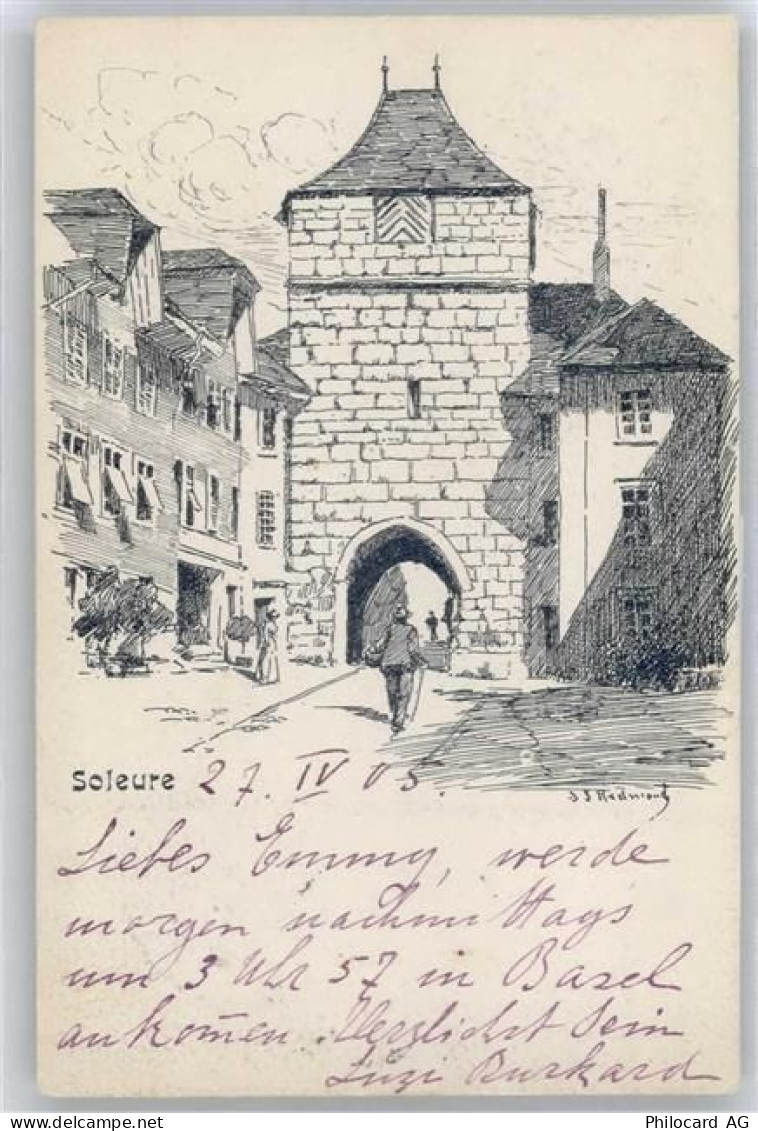 Soleure 27. IV 05.
J J Redmond
Liebes Emmy, werde
morgen nachmittags
um 3 Uhr 57 in Basel
ankom̄en. Herzlichst Dein
Luzi Burkard
Philocard AG